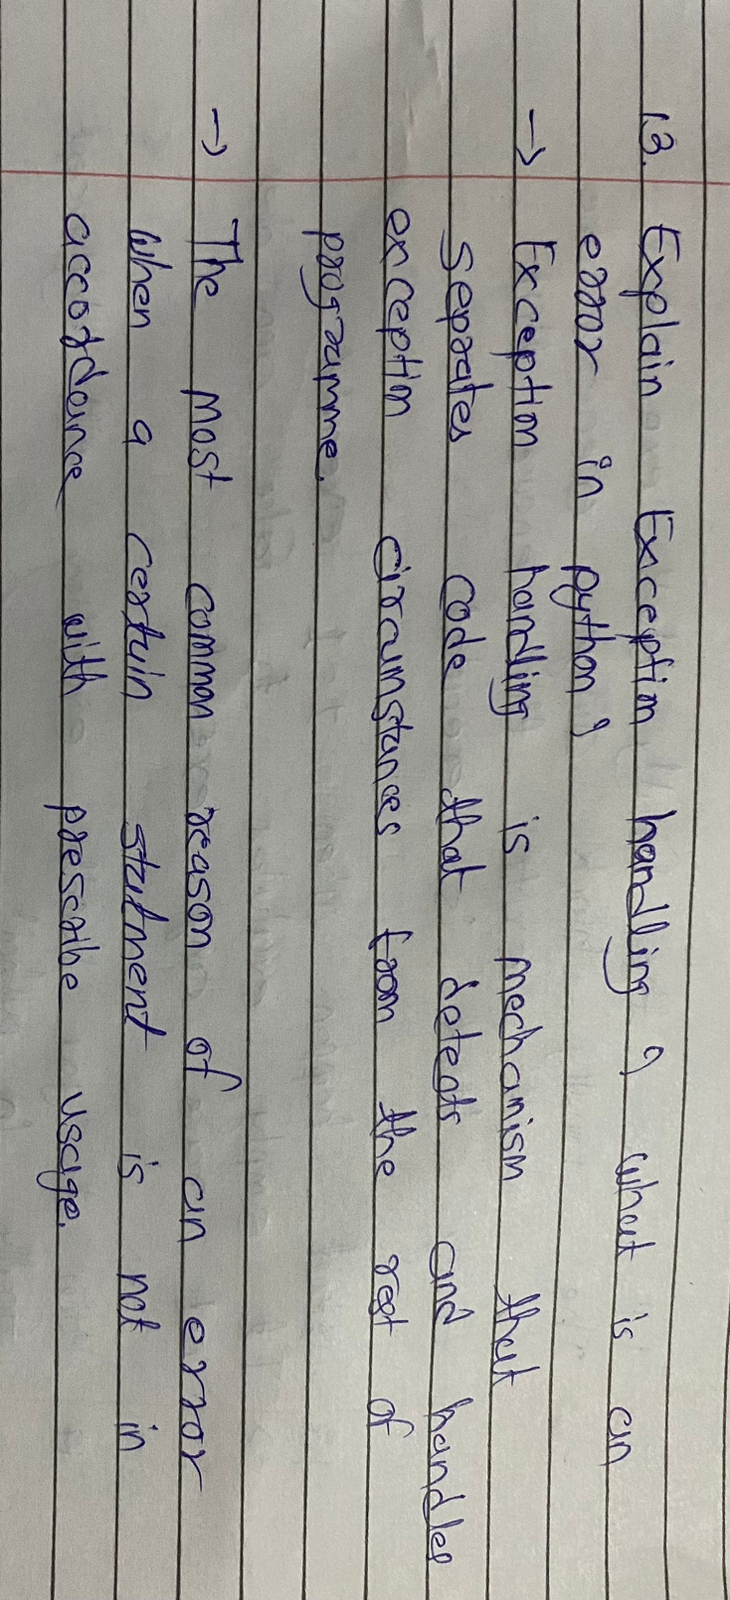 13. Explain Exception handling? what is an
error in python?
→ Exception handling is mechanism that
seprates code that detects and handles
exception circumstances from the rest of
programme.
→ The most common reason of an error
when a certain statment is not in
accordance with prescribe usage.